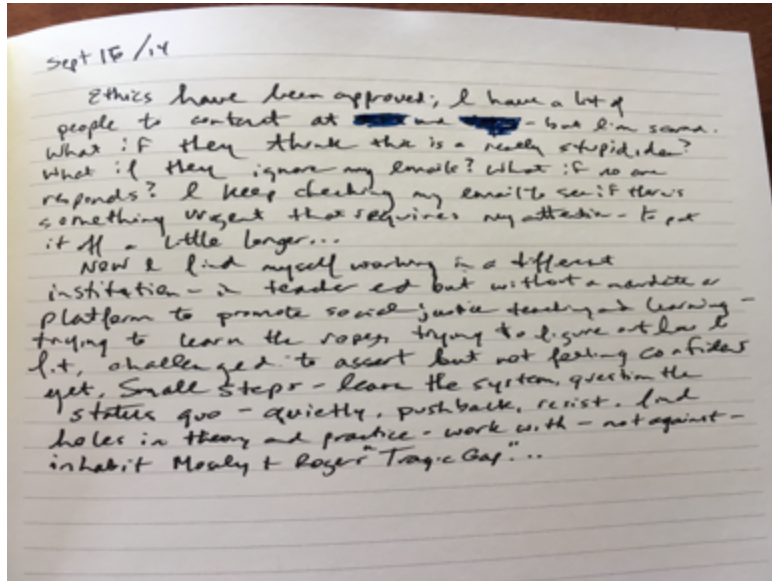 Sept 15 /14
Ethics have been approved; I have a lot of
people to contact at and - but I'm scared.
What if they think this is a really stupid idea?
What if they ignore my emails? What if no one
responds? I keep checking my email to see if there's
something urgent that requires my attention - to put
it off a little longer...
Now I find myself working in a different
institution - in teacher ed but without a mandate or
platform to promote social justice teaching and learning -
trying to learn the ropes, trying to figure out how I
fit, challenged to assert but not feeling confident
yet. Small steps - learn the system, question the
status quo - quietly, pushback, resist, find
holes in theory and practice - work with - not against -
inhabit + "Tragic Gap"...